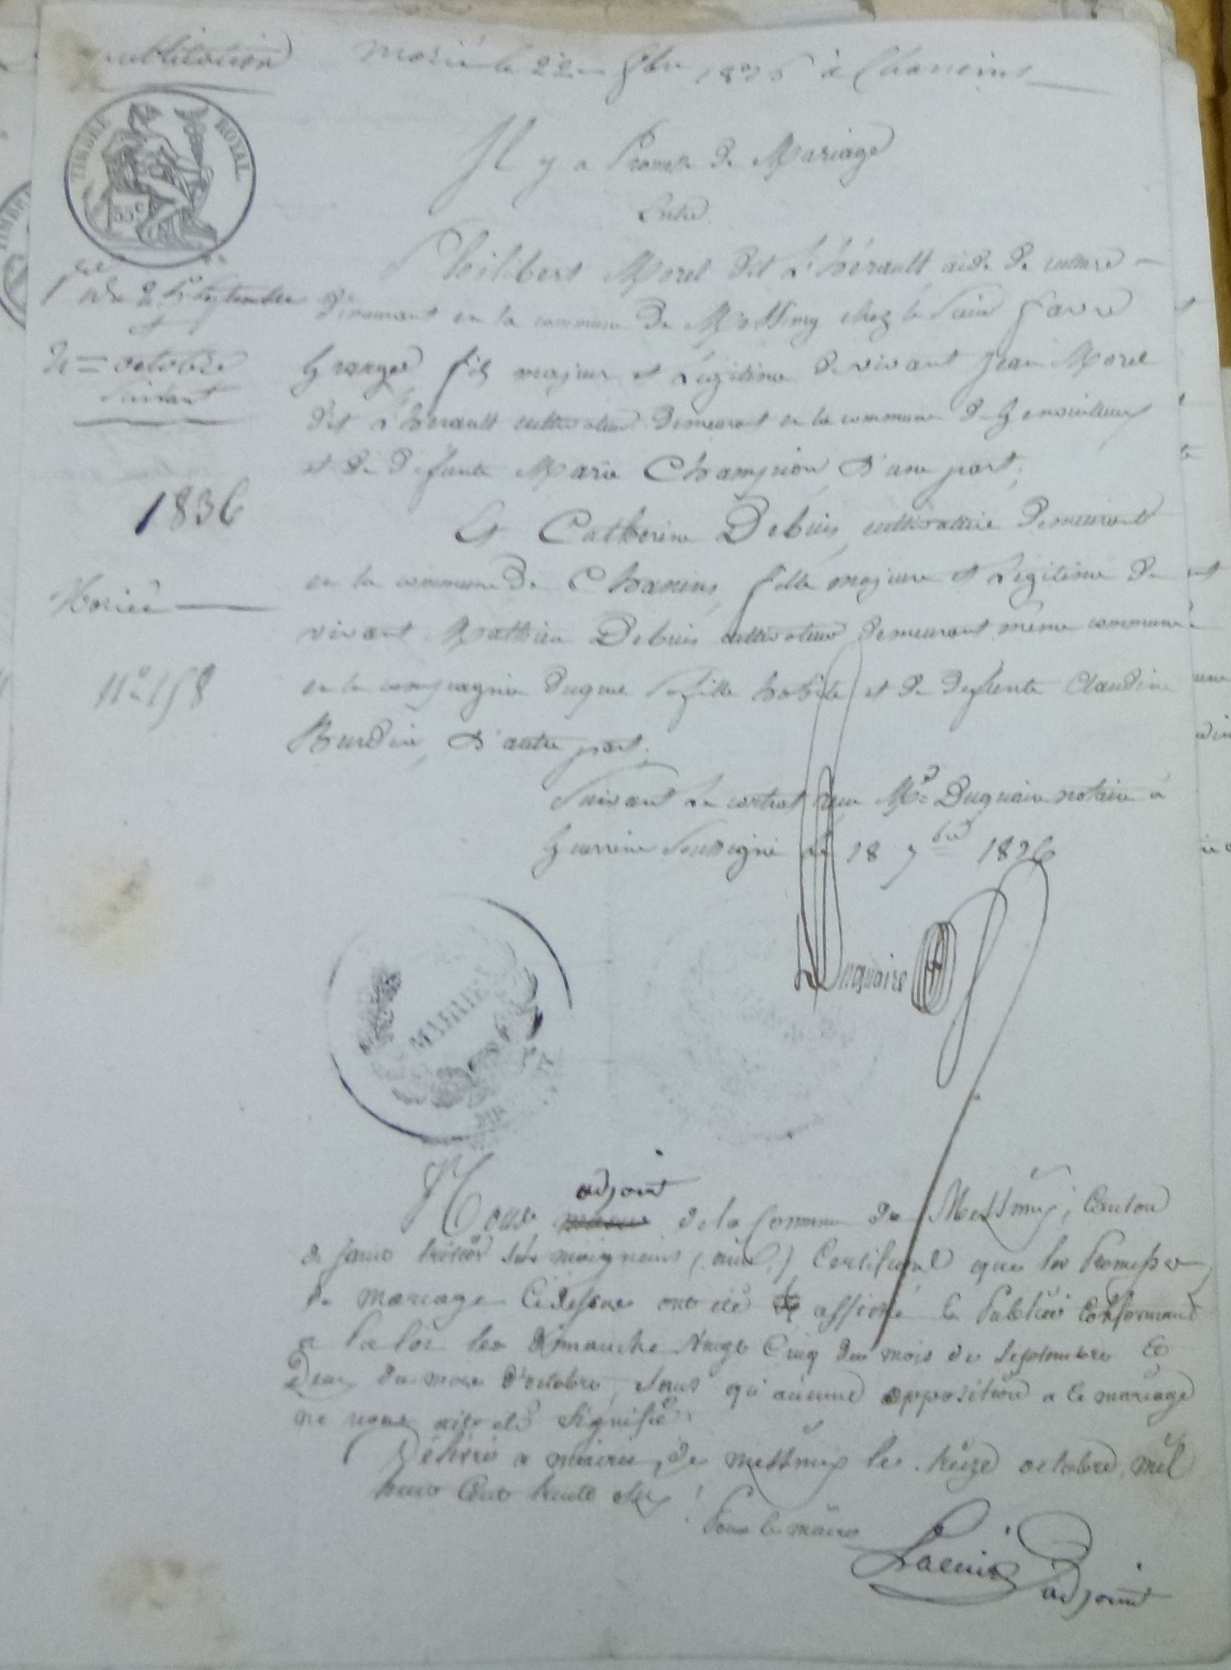 publication mariés le 22 9bre 1836 à Chaneins
TIMBRE ROYAL
35c
Il y a Promesse de Mariage
Entre
Philibert Morel dit L'hérault aide de culture
1re du 25 Septembre
demeurant en la commune de Messimy chez le Sieur Favre
et
2e = octobre
Granger fils majeur et Légitime de vivant Jean Morel
suivant
dit L'hérault cultivateur demeurant en la commune de Genouilleux
et de défunte Marie Champion, d'une part;
1836
Et Catherine Debuis, cultivatrice demeurant
en la commune de Chaneins, fille majeure et Légitime de
Mariés
vivant Mathieu Debuis cultivateur demeurant même commune
en la compagnie duquel sa fille habite et de defunte Claudine
n° 158
Burdin, d'autre part.
Suivant le contrat reçu Me Duquaire notaire à
Guerrin soussigné le 18 7bre 1836
Duquaire
MAIRIE
Nous maire adjoint de la Commune de Messimy, Canton
de saint trivier sur moignans (ain) Certifions que les Promesses
de mariage Cidessus ont été affiché & Publiées Conformement
a la loi les dimanche Vingt Cinq du mois de Septembre Et
Deux du mois d'octobre, sans qu'aucune opposition a ce mariage
ne nous aite été signifié.
Délivré a mairie de messimy le treize octobre mil
huit Cent trente six
Pour le maire
adjoint